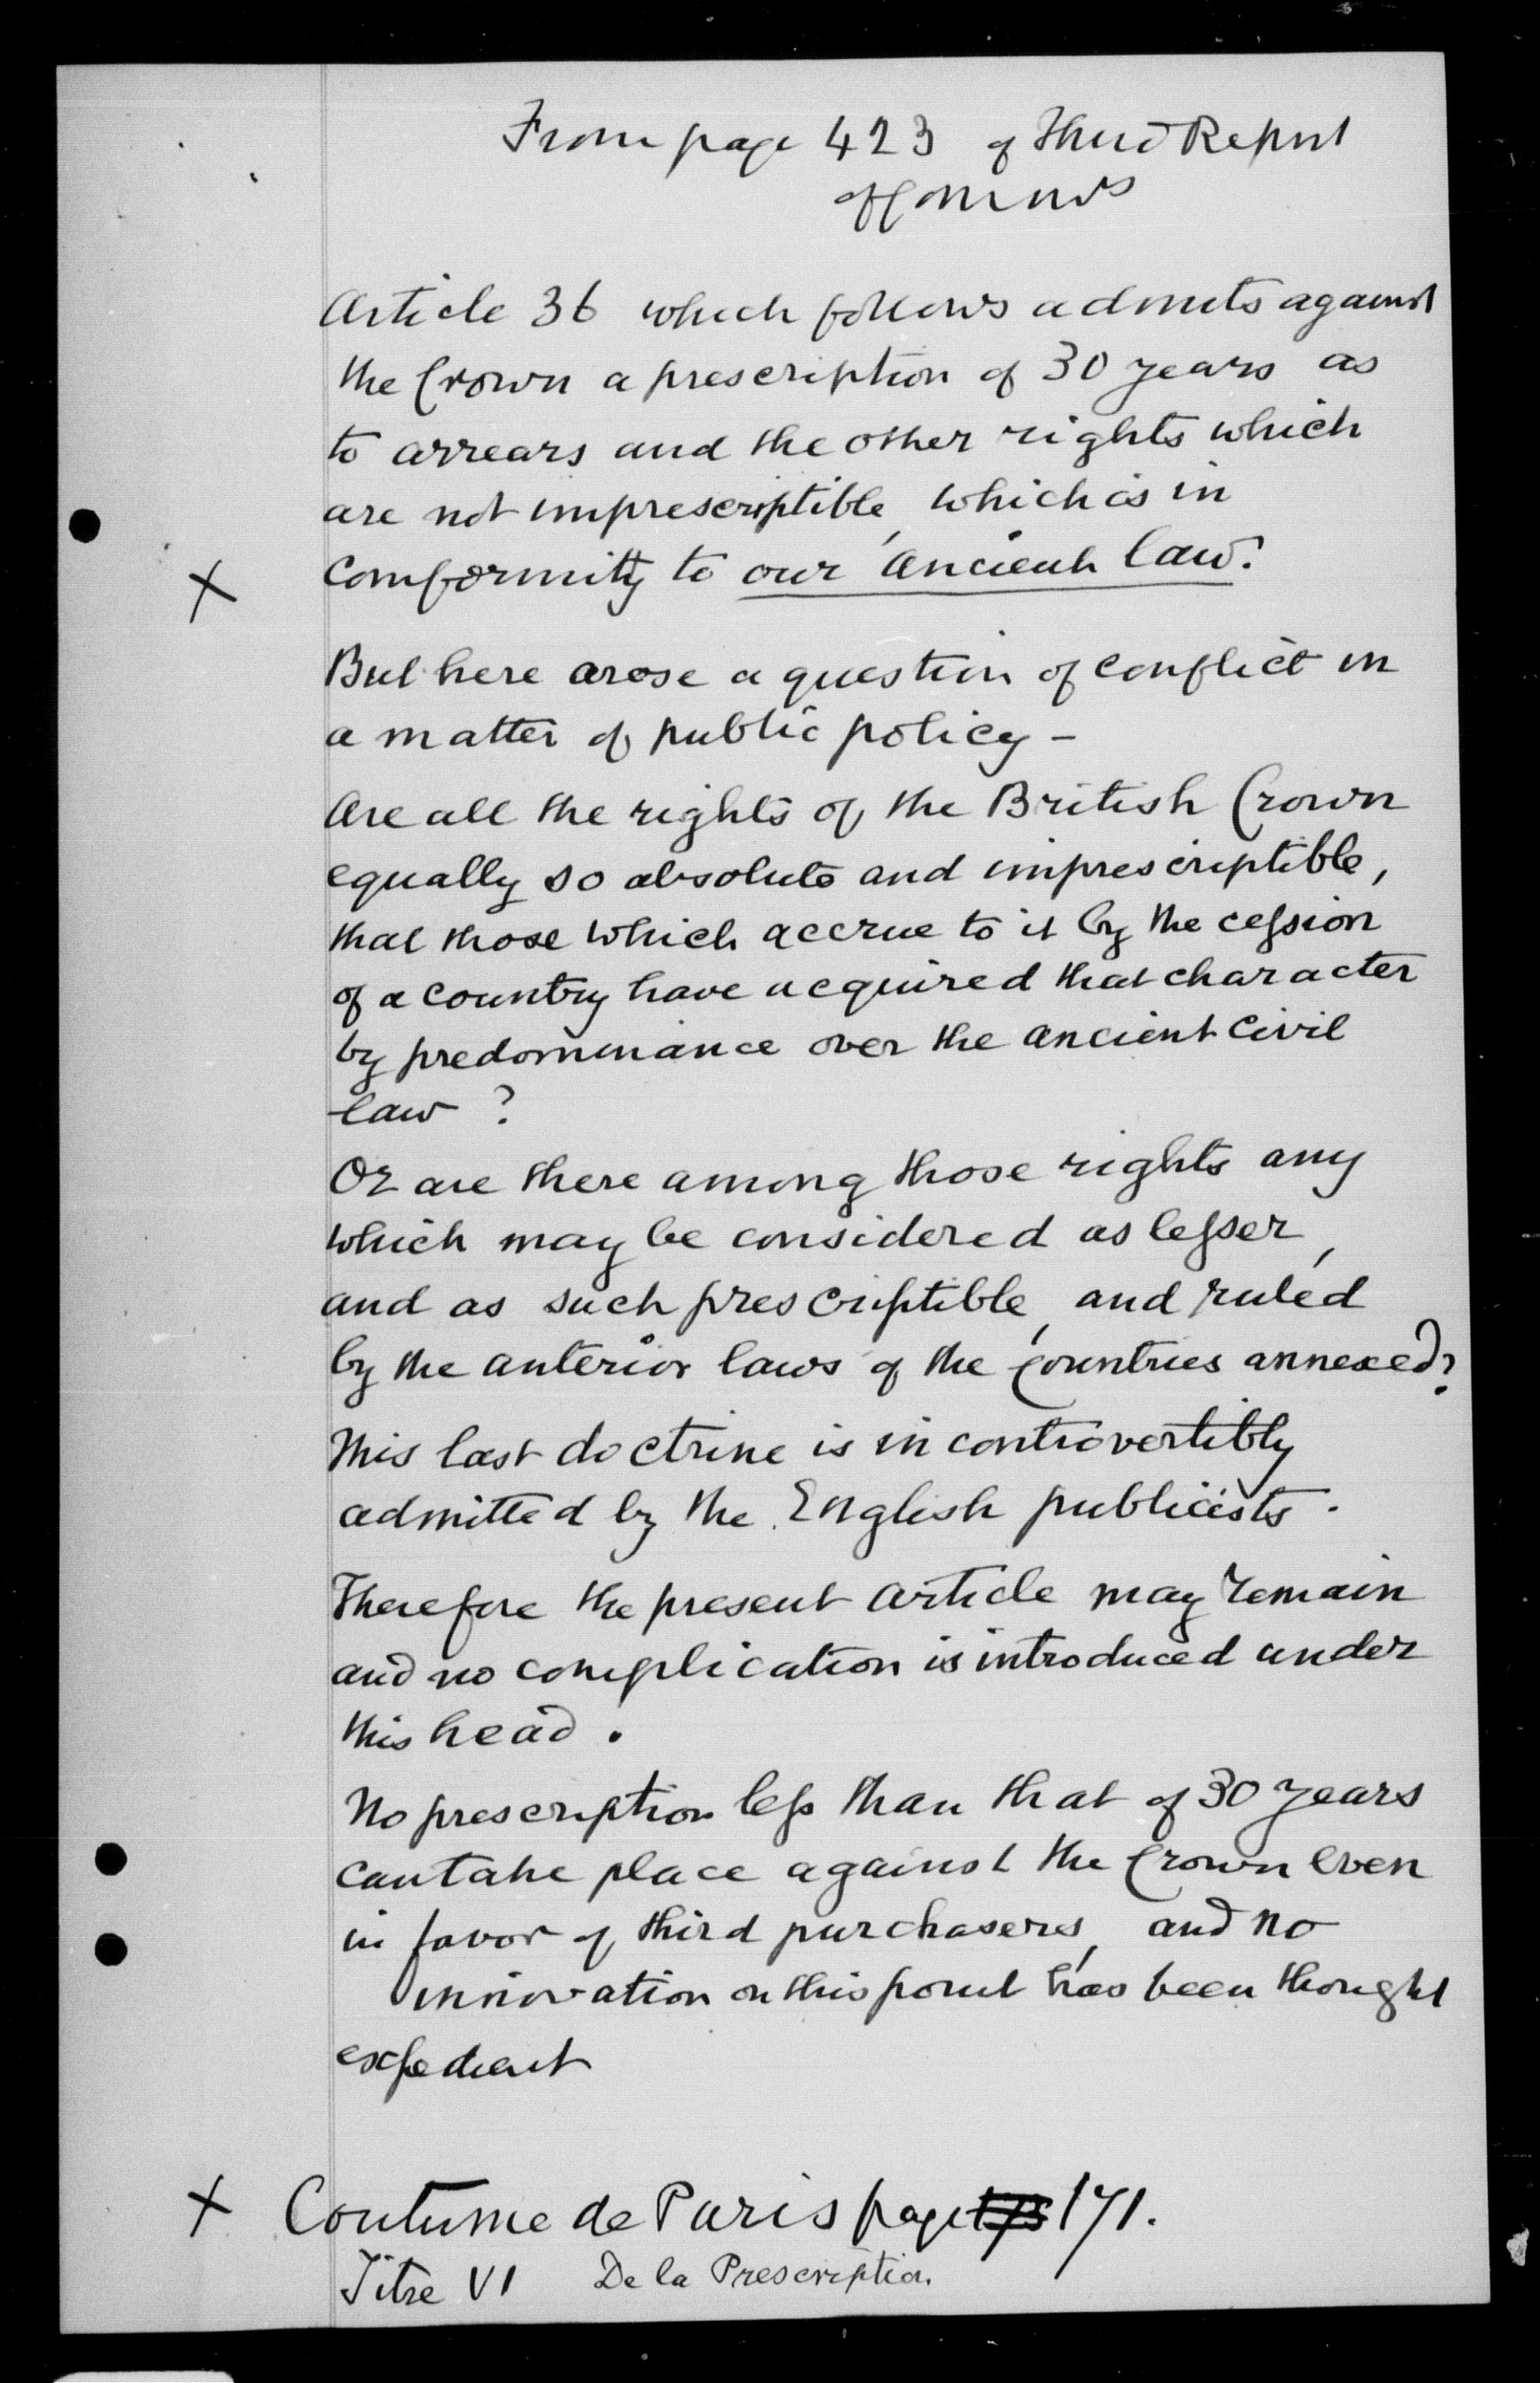 From page 423 of Third Report
of Commrs
Article 36 which follows admits against
the Crown a prescription of 30 years as
to arrears and the other rights which
are not imprescriptible, which is in
X conformity to our ancient law.
But here arose a question of conflict in
a matter of public policy -
Are all the rights of the British Crown
equally so absolute and imprescriptible,
that those which accrue to it by the cession
of a country have acquired that character
by predominance over the ancient civil
law ?
Or are there among those rights any
which may be considered as lesser,
and as such prescriptible, and ruled
by the anterior laws of the Countries annexed?
This last doctrine is incontrovertibly
admitted by the English publicists.
Therefore the present article may remain
and no complication is introduced under
this head.
No prescription less than that of 30 years
can take place against the Crown even
in favor of third purchasers, and no
innovation on this point has been thought
expedient
X Coutume de Paris page 173 171.
Titre VI De la Prescription.